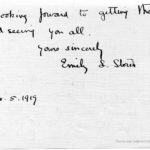 looking forward to getting the
d seeing you all.
Yours sincerely
Emily S. Stout
.5.1919